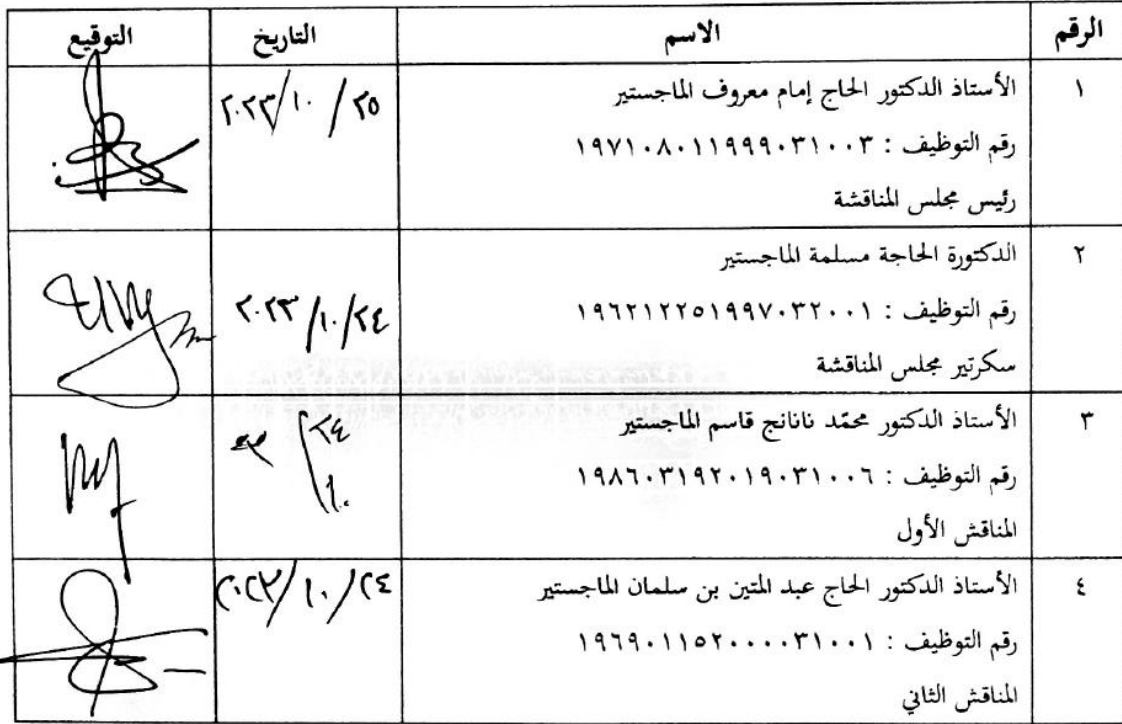 الرقم الاسم التاريخ التوقيع
١ الأستاذ الدكتور الحاج إمام معروف الماجستير ٢٥/١٠/٢٠٢٣
رقم التوظيف : ١٩٧١٠٨٠١١٩٩٩٠٣١٠٠٣
رئيس مجلس المناقشة
٢ الدكتورة الحاجة مسلمة الماجستير
رقم التوظيف : ١٩٦٢١٢٢٥١٩٩٧٠٣٢٠٠١ ٢٤/١٠/٢٠٢٣
سكرتير مجلس المناقشة
٣ الأستاذ الدكتور محمّد نانانج قاسم الماجستير ٢٤/١٠
رقم التوظيف : ١٩٨٦٠٣١٩٢٠١٩٠٣١٠٠٦
المناقش الأول
٤ الأستاذ الدكتور الحاج عبد المتين بن سلمان الماجستير ٢٤/١٠/٢٠٢٣
رقم التوظيف : ١٩٦٩٠١١٥٢٠٠٠٠٣١٠٠١
المناقش الثاني